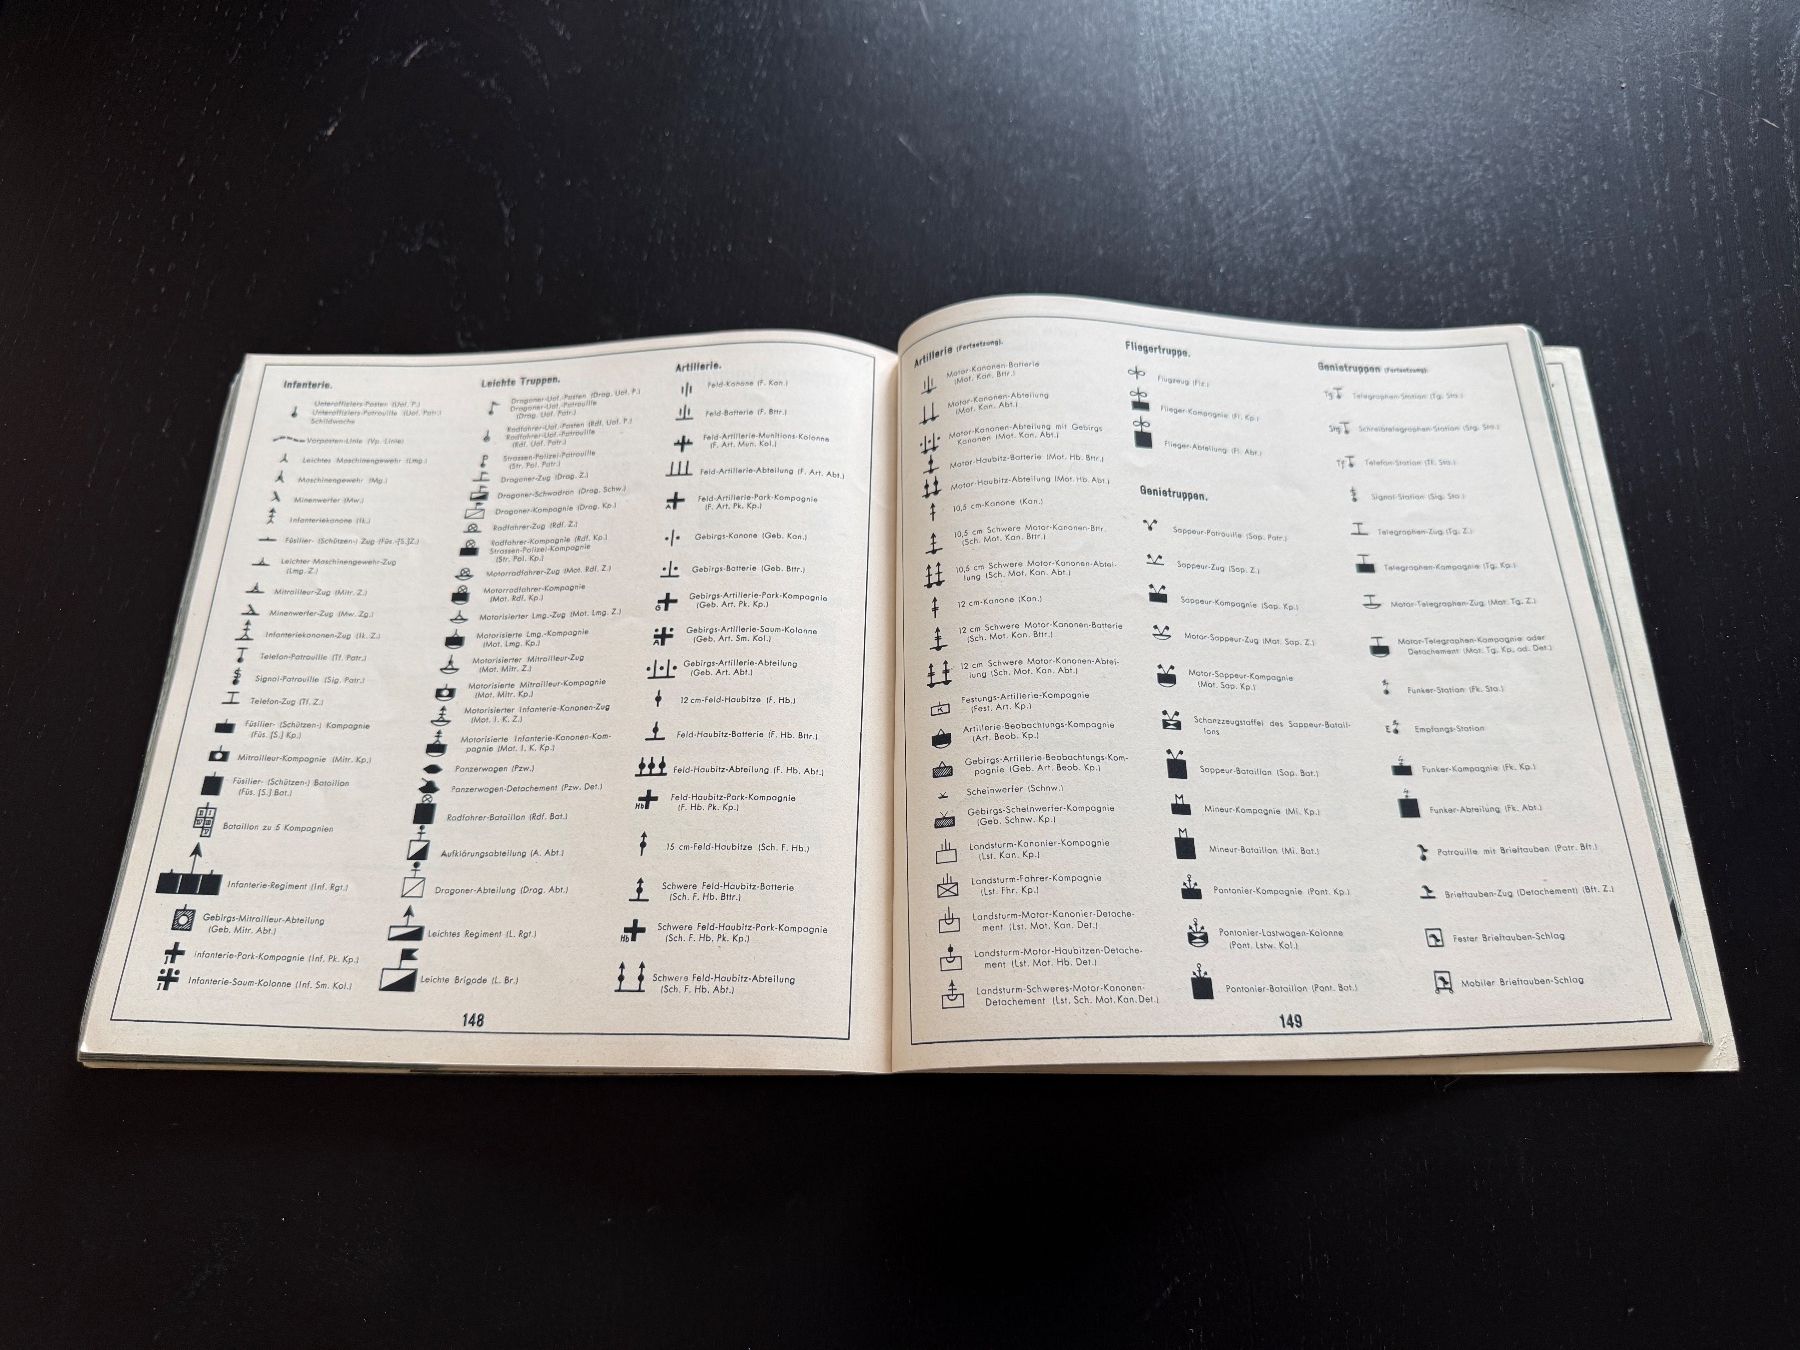 Infanterie.
Unteroffiziers-Posten (Uof. P.)
Unteroffiziers-Patrouille (Uof. Patr.)
Schildwache
Vorposten-Linie (Vp. Linie)
Leichtes Maschinengewehr (Lmg.)
Maschinengewehr (Mg.)
Minenwerfer (Mw.)
Infanteriekanone (Ik.)
Füsilier- (Schützen-) Zug (Füs.-[S.]Z.)
Leichter Maschinengewehr-Zug
(Lmg. Z.)
Mitrailleur-Zug (Mitr. Z.)
Minenwerfer-Zug (Mw. Zg.)
Infanteriekanonen-Zug (Ik. Z.)
Telefon-Patrouille (Tf. Patr.)
Signal-Patrouille (Sig. Patr.)
Telefon-Zug (Tf. Z.)
Füsilier- (Schützen-) Kompagnie
(Füs. [S.] Kp.)
Mitrailleur-Kompagnie (Mitr. Kp.)
Füsilier- (Schützen-) Bataillon
(Füs. [S.] Bat.)
Bataillon zu 5 Kompagnien
Infanterie-Regiment (Inf. Rgt.)
Gebirgs-Mitrailleur-Abteilung
(Geb. Mitr. Abt.)
Infanterie-Park-Kompagnie (Inf. Pk. Kp.)
Infanterie-Saum-Kolonne (Inf. Sm. Kol.)
Leichte Truppen.
Dragoner-Uof.-Posten (Drag. Uof. P.)
Dragoner-Uof.-Patrouille
(Drag. Uof. Patr.)
Radfahrer-Uof.-Posten (Rdf. Uof. P.)
Radfahrer-Uof.-Patrouille
(Rdf. Uof. Patr.)
Strassen-Polizei-Patrouille
(Str. Pol. Patr.)
Dragoner-Zug (Drag. Z.)
Dragoner-Schwadron (Drag. Schw.)
Dragoner-Kompagnie (Drag. Kp.)
Radfahrer-Zug (Rdf. Z.)
Radfahrer-Kompagnie (Rdf. Kp.)
Strassen-Polizei-Kompagnie
(Str. Pol. Kp.)
Motorradfahrer-Zug (Mot. Rdf. Z.)
Motorradfahrer-Kompagnie
(Mot. Rdf. Kp.)
Motorisierter Lmg.-Zug (Mot. Lmg. Z.)
Motorisierte Lmg.-Kompagnie
(Mot. Lmg. Kp.)
Motorisierter Mitrailleur-Zug
(Mot. Mitr. Z.)
Motorisierte Mitrailleur-Kompagnie
(Mot. Mitr. Kp.)
Motorisierter Infanterie-Kanonen-Zug
(Mot. I. K. Z.)
Motorisierte Infanterie-Kanonen-Kom-
pagnie (Mot. I. K. Kp.)
Panzerwagen (Pzw.)
Panzerwagen-Detachement (Pzw. Det.)
Radfahrer-Bataillon (Rdf. Bat.)
Aufklärungsabteilung (A. Abt.)
Dragoner-Abteilung (Drag. Abt.)
Leichtes Regiment (L. Rgt.)
Leichte Brigade (L. Br.)
Artillerie.
Feld-Kanone (F. Kan.)
Feld-Batterie (F. Bttr.)
Feld-Artillerie-Munitions-Kolonne
(F. Art. Mun. Kol.)
Feld-Artillerie-Abteilung (F. Art. Abt.)
A
Feld-Artillerie-Park-Kompagnie
(F. Art. Pk. Kp.)
Gebirgs-Kanone (Geb. Kan.)
Gebirgs-Batterie (Geb. Bttr.)
G
Gebirgs-Artillerie-Park-Kompagnie
(Geb. Art. Pk. Kp.)
A
Gebirgs-Artillerie-Saum-Kolonne
(Geb. Art. Sm. Kol.)
Gebirgs-Artillerie-Abteilung
(Geb. Art. Abt.)
12 cm-Feld-Haubitze (F. Hb.)
Feld-Haubitz-Batterie (F. Hb. Bttr.)
Feld-Haubitz-Abteilung (F. Hb. Abt.)
Hb
Feld-Haubitz-Park-Kompagnie
(F. Hb. Pk. Kp.)
15 cm-Feld-Haubitze (Sch. F. Hb.)
Schwere Feld-Haubitz-Batterie
(Sch. F. Hb. Bttr.)
Hb
Schwere Feld-Haubitz-Park-Kompagnie
(Sch. F. Hb. Pk. Kp.)
Schwere Feld-Haubitz-Abteilung
(Sch. F. Hb. Abt.)
148
Artillerie (Fortsetzung).
Motor-Kanonen-Batterie
(Mot. Kan. Bttr.)
Motor-Kanonen-Abteilung
(Mot. Kan. Abt.)
Motor-Kanonen-Abteilung mit Gebirgs
Kanonen (Mot. Kan. Abt.)
Motor-Haubitz-Batterie (Mot. Hb. Bttr.)
Motor-Haubitz-Abteilung (Mot. Hb. Abt.)
10,5 cm-Kanone (Kan.)
10,5 cm Schwere Motor-Kanonen-Bttr.
(Sch. Mot. Kan. Bttr.)
10,5 cm Schwere Motor-Kanonen-Abtei-
lung (Sch. Mot. Kan. Abt.)
12 cm-Kanone (Kan.)
12 cm Schwere Motor-Kanonen-Batterie
(Sch. Mot. Kan. Bttr.)
12 cm Schwere Motor-Kanonen-Abtei-
lung (Sch. Mot. Kan. Abt.)
K
Festungs-Artillerie-Kompagnie
(Fest. Art. Kp.)
Artillerie-Beobachtungs-Kompagnie
(Art. Beob. Kp.)
Gebirgs-Artillerie-Beobachtungs-Kom-
pagnie (Geb. Art. Beob. Kp.)
Scheinwerfer (Schnw.)
Gebirgs-Scheinwerfer-Kompagnie
(Geb. Schnw. Kp.)
Landsturm-Kanonier-Kompagnie
(Lst. Kan. Kp.)
Landsturm-Fahrer-Kompagnie
(Lst. Fhr. Kp.)
Landsturm-Motor-Kanonier-Detache-
ment (Lst. Mot. Kan. Det.)
Landsturm-Motor-Haubitzen-Detache-
ment (Lst. Mot. Hb. Det.)
Landsturm-Schweres-Motor-Kanonen-
Detachement (Lst. Sch. Mot. Kan. Det.)
Fliegertruppe.
Flugzeug (Flz.)
Flieger-Kompagnie (Fl. Kp.)
Flieger-Abteilung (Fl. Abt.)
Genietruppen.
Sappeur-Patrouille (Sap. Patr.)
Sappeur-Zug (Sap. Z.)
Sappeur-Kompagnie (Sap. Kp.)
Motor-Sappeur-Zug (Mot. Sap. Z.)
Motor-Sappeur-Kompagnie
(Mot. Sap. Kp.)
Schanzzeugstaffel des Sappeur-Batail-
lons
Sappeur-Bataillon (Sap. Bat.)
M
Mineur-Kompagnie (Mi. Kp.)
M
Mineur-Bataillon (Mi. Bat.)
Pontonier-Kompagnie (Pont. Kp.)
Pontonier-Lastwagen-Kolonne
(Pont. Lstw. Kol.)
Pontonier-Bataillon (Pont. Bat.)
Genietruppen (Fortsetzung).
Tg
Telegraphen-Station (Tg. Sta.)
Stg
Schreibtelegraphen-Station (Stg. Sta.)
Tf
Telefon-Station (Tf. Sta.)
Signal-Station (Sig. Sta.)
Telegraphen-Zug (Tg. Z.)
Telegraphen-Kompagnie (Tg. Kp.)
Motor-Telegraphen-Zug (Mot. Tg. Z.)
Motor-Telegraphen-Kompagnie oder
Detachement (Mot. Tg. Kp. od. Det.)
Funker-Station (Fk. Sta.)
E
Empfangs-Station
Funker-Kompagnie (Fk. Kp.)
Funker-Abteilung (Fk. Abt.)
Patrouille mit Brieftauben (Patr. Bft.)
Brieftauben-Zug (Detachement) (Bft. Z.)
Fester Brieftauben-Schlag
Mobiler Brieftauben-Schlag
149